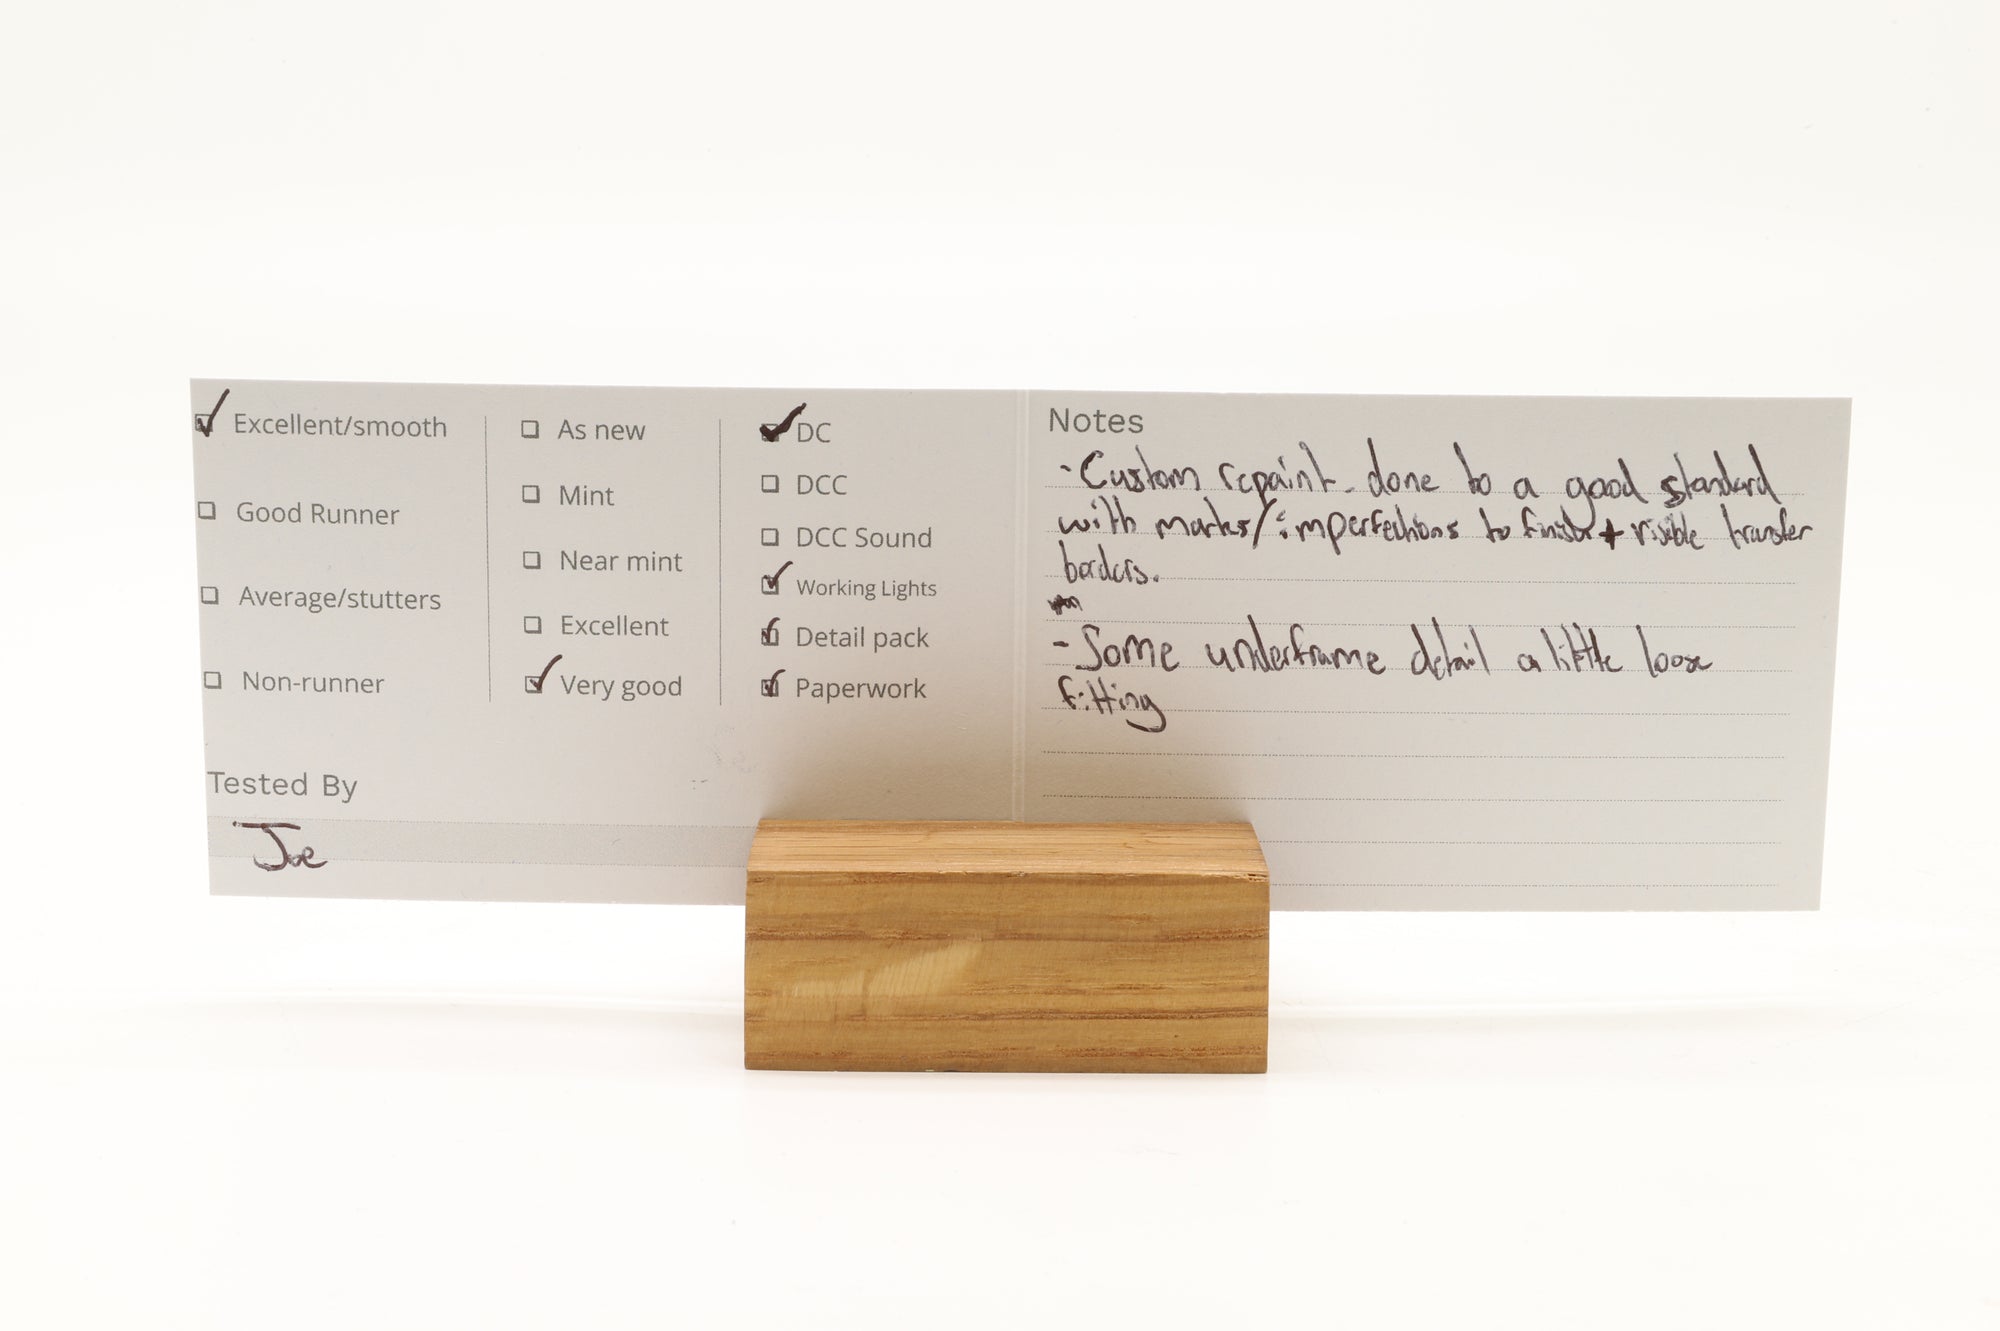 Excellent/smooth
Good Runner
Average/stutters
Non-runner
As new
Mint
Near mint
Excellent
Very good
DC
DCC
DCC Sound
Working Lights
Detail pack
Paperwork
Tested By
Joe
Notes
- Custom repaint - done to a good standard
with marks/imperfections to finish + visible transfer
borders.
- Some underframe detail a little loose
fitting